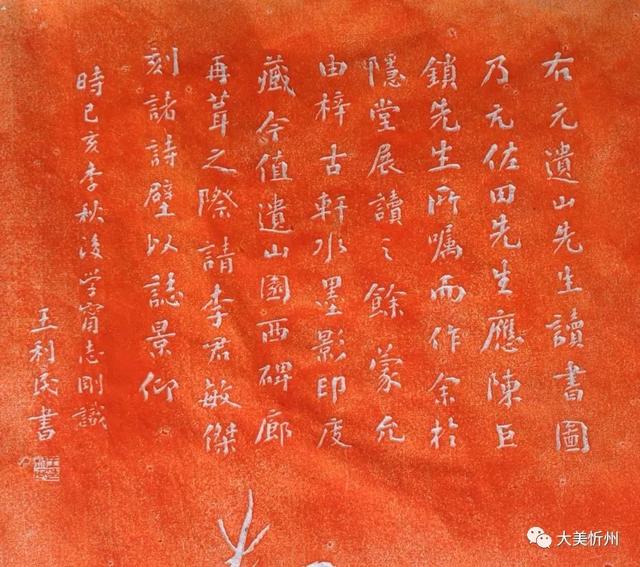 右元遺山先生讀書圖
乃元佐田先生應陳巨
鎖先生所嘱而作余於
隱堂展讀之餘蒙允
由梓古軒水墨影印度
藏今值遺山園西碑廊
再葺之際請李君敏傑
刻諸詩壁以誌景仰
時己亥季秋後学甯志剛識
王利民書
大美忻州